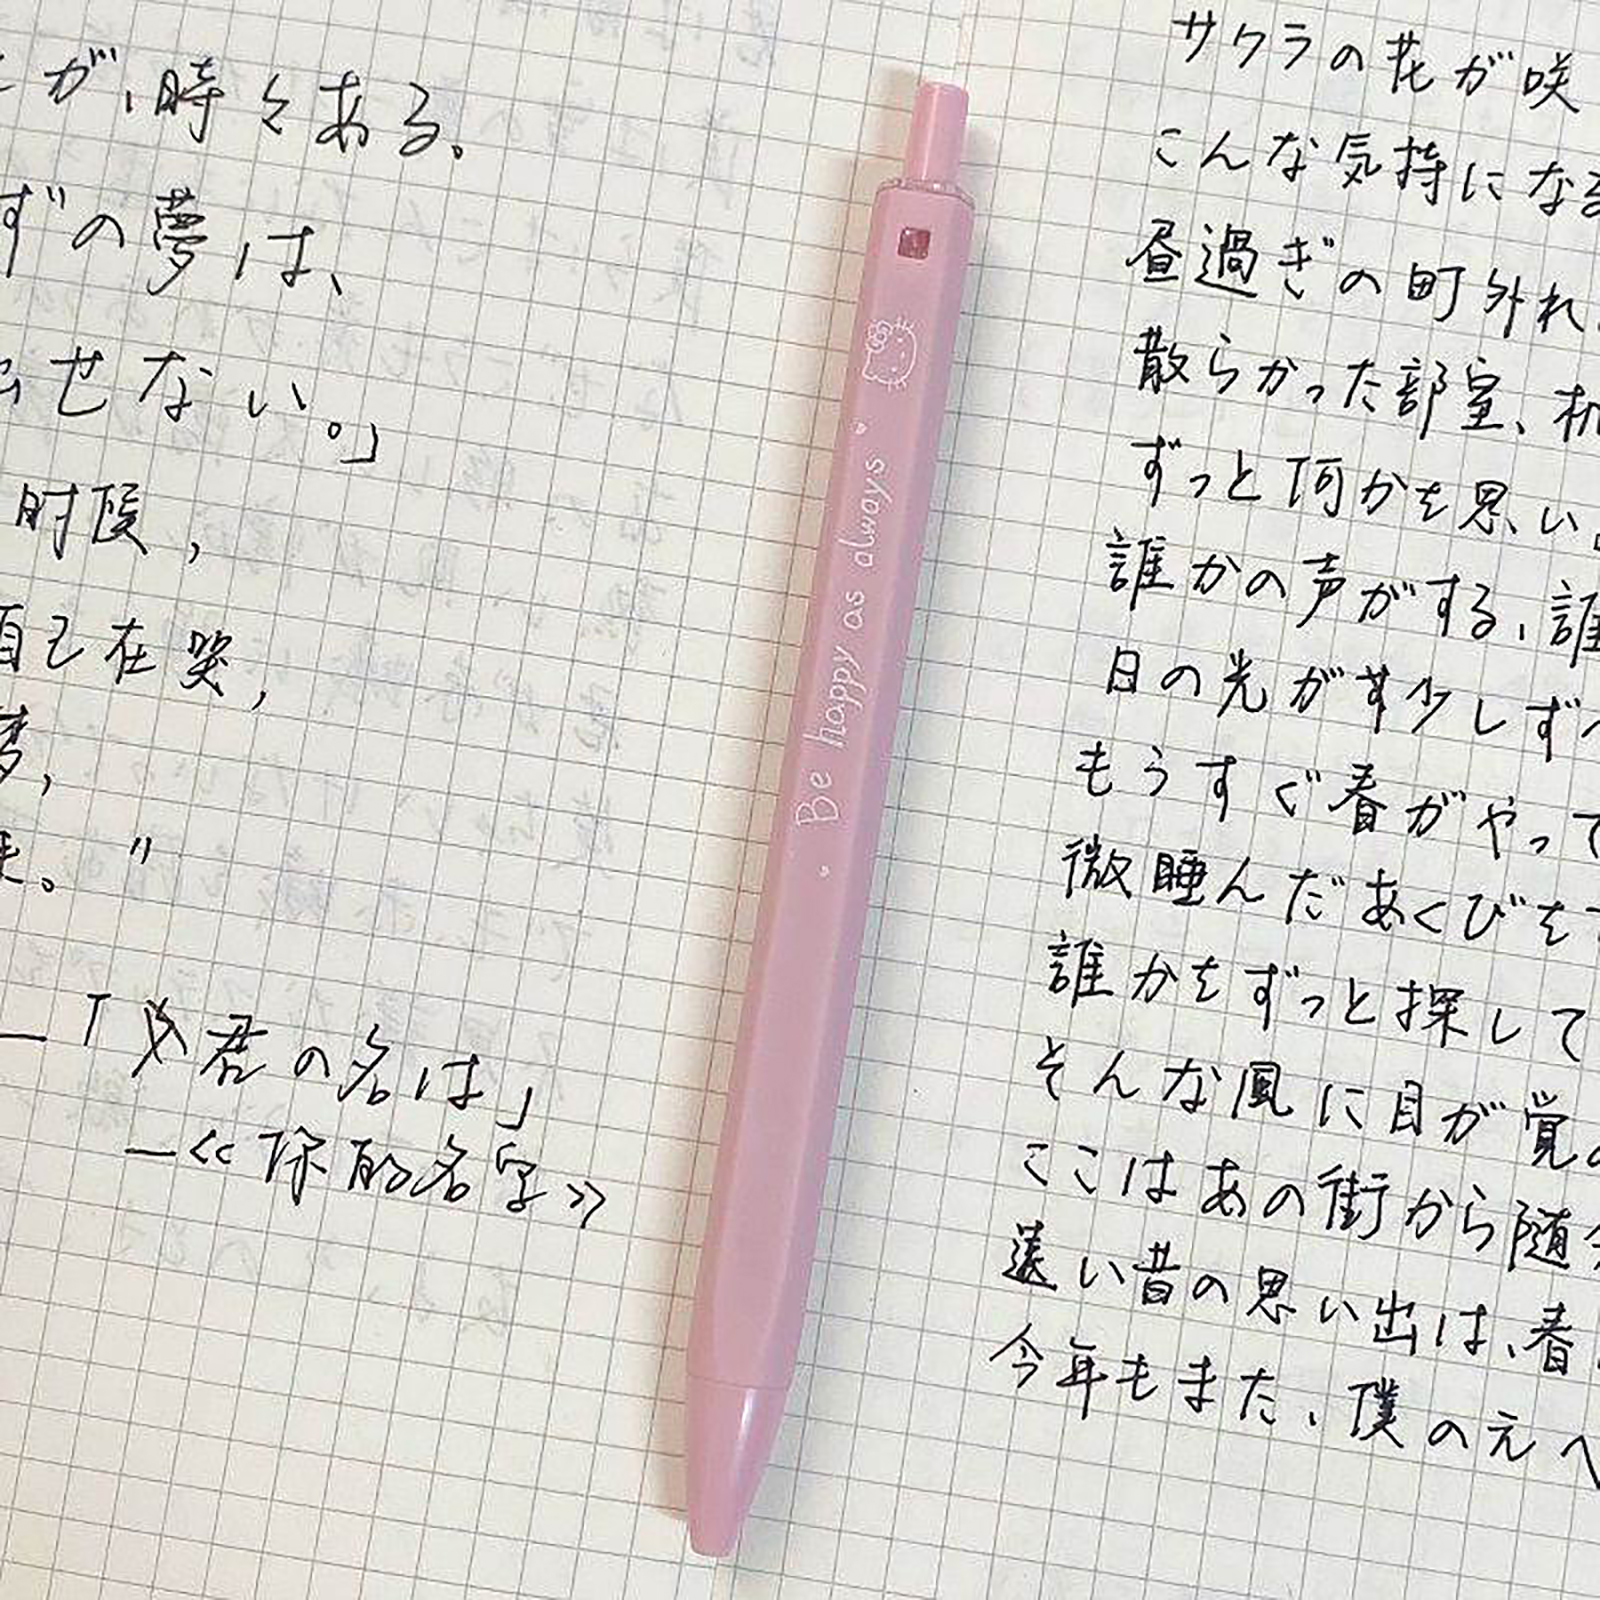 が、時々ある。
ずの夢は、
出せない。」
时候，
自己在哭，
梦，
来。"
—「君の名は」
—<<你的名字>>
Be happy as always
サクラの花が咲
こんな気持になる
昼過ぎの町外れ
散らかった部室、机
ずっと何かを思い
誰かの声がする、誰
日の光が少しずつ
もうすぐ春がやって
微睡んだあくびをす
誰かをずっと探して
そんな風に目が覚め
ここはあの街から随分
遠い昔の思い出は、春
今年もまた、僕の元へ